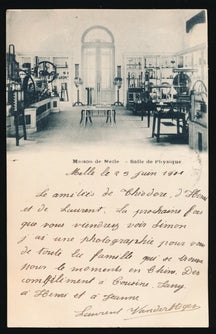 Maison de Melle - Salle de Physique
Melle le 29 juin 1901
Les amitiés de Théodore, d'Henri
et de Laurent. La prochaine fois
que vous viendrez voir Simon
j'ai une photographie pour vous
de toute la famille qui se trouve
pour le moment en Chine. Des
compliments à Cousine Fany
à Henri et à Jeanne
Laurent